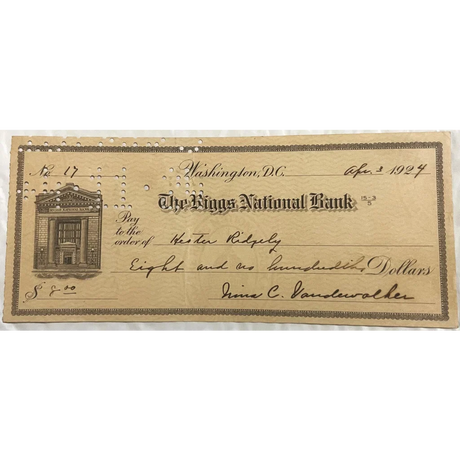 No. 17 Washington, D.C. Apr. 3 1924
The Riggs National Bank 15-3/5
Pay to the order of Hester Ridgely
Eight and no hundredths Dollars
$ 8.00 Nina C. Vandewalker